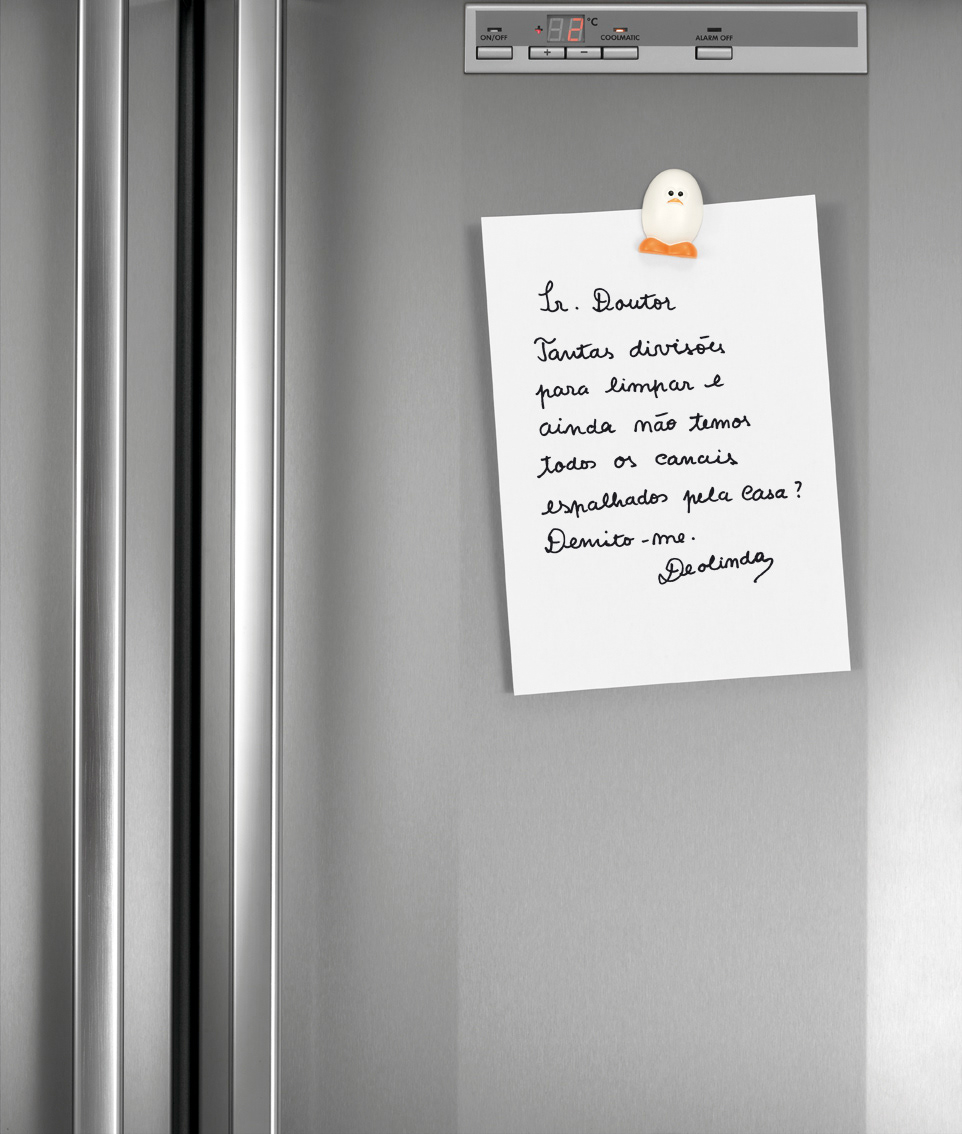 °C
2
ON/OFF
+
−
COOLMATIC
ALARM OFF
Sr. Doutor
Tantas divisões
para limpar e
ainda não temos
todos os canais
espalhados pela casa?
Demito-me.
Deolinda